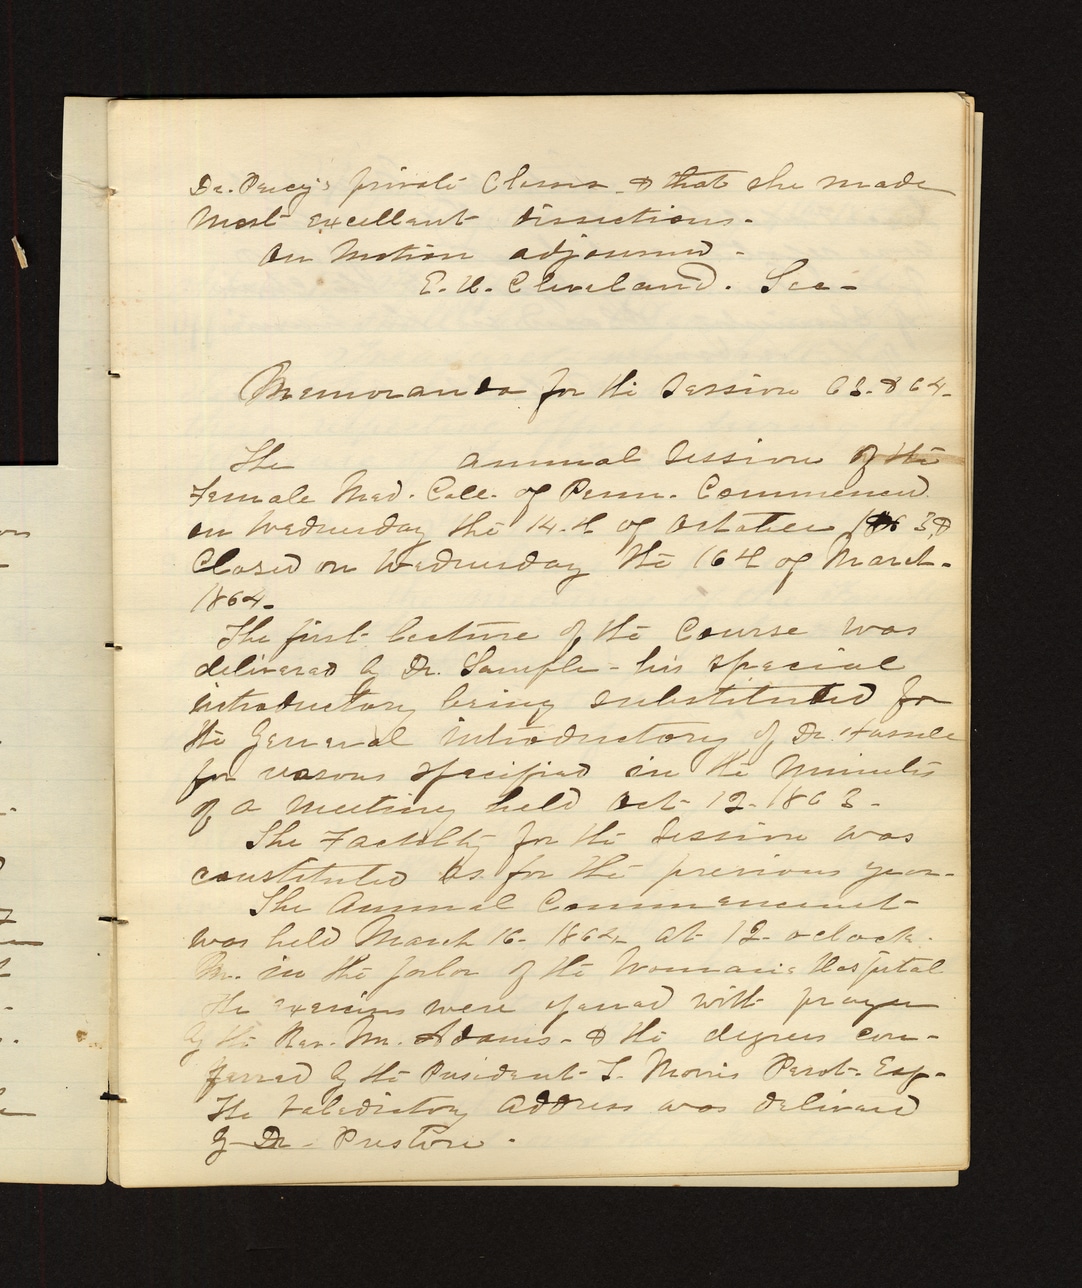 Dr. Percy's private Classes & that she made
most excellent dissections.
On Motion adjourned.
E. H. Cleveland. Sec-
Memoranda for the Session 63 & 64.
The annual Session of the
Female Med. Coll. of Penn. Commenced
on Wednesday the 14th of October 1863, &
Closed on Wednesday the 16th of March.
1864.
The first lecture of the Course was
delivered by Dr. Sample - his special
introductory being substituted for
the General introductory of Dr.
for reasons specified in the Minutes
of a Meeting held Oct. 12. 1863.
The Faculty for the Session was
constituted as for the previous year.
The Annual Commencement
was held March 16. 1864 at 12 oclock
M. in the parlor of the Woman's Hospital
The exercises were opened with prayer
by the Rev. Mr. Adams. & the degrees con-
ferred by the President T. Morris Perot. Esq.
The Valedictory Address was delivered
by Dr. Preston.